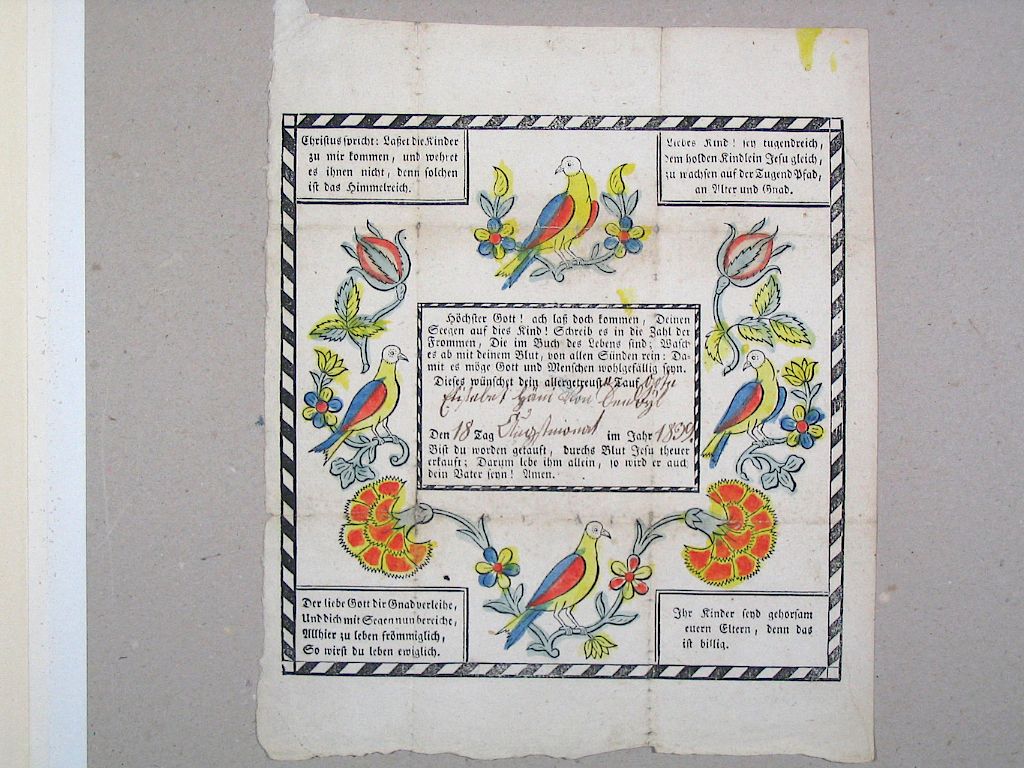 Christus spricht: Laßet die Kinder
zu mir kommen, und wehret
es ihnen nicht, denn solchen
ist das Himmelreich.
Liebes Kind! sey tugendreich,
dem holden Kindlein Jesu gleich,
zu wachsen auf der Tugend Pfad,
an Alter und Gnad.
Höchster Gott! ach laß doch kommen, Deinen
Seegen auf dies Kind! Schreib es in die Zahl der
Frommen, Die im Buch des Lebens sind; Wasch
es ab mit deinem Blut, von allen Sünden rein: Da-
mit es möge Gott und Menschen wohlgefällig seyn.
Dieses wünschet dein allergetreuste Tauf Gote
Elisabet von
Den 18 Tag Augstmonat im Jahr 1839.
Bist du worden getauft, durchs Blut Jesu theuer
erkauft; Darum lebe ihm allein, so wird er auch
dein Vater seyn! Amen.
Der liebe Gott dir Gnad verleihe,
Und dich mit Segen nun bereiche,
Allhier zu leben frömmiglich,
So wirst du leben ewiglich.
Ihr Kinder seyd gehorsam
euern Eltern, denn das
ist billig.